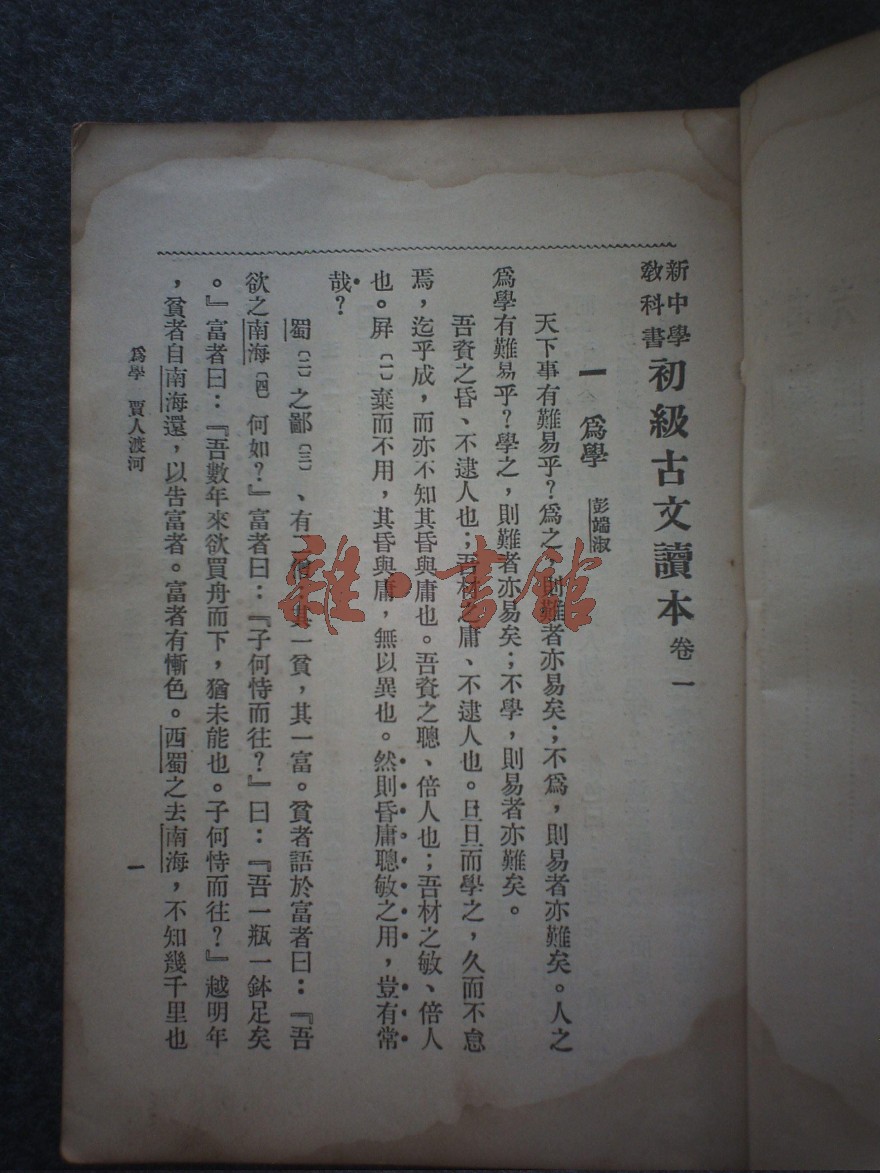 新中學教科書 初級古文讀本 卷一
一 爲學 彭端淑
天下事有難易乎？爲之，則難者亦易矣；不爲，則易者亦難矣。人之
爲學有難易乎？學之，則難者亦易矣；不學，則易者亦難矣。
吾資之昏、不逮人也；吾材之庸、不逮人也。旦旦而學之，久而不怠
焉，迄乎成，而亦不知其昏與庸也。吾資之聰、倍人也；吾材之敏、倍人
也。屏〔一〕棄而不用，其昏與庸，無以異也。然則昏庸聰敏之用，豈有常
哉？
蜀〔二〕之鄙〔三〕、有二僧：其一貧，其一富。貧者語於富者曰：『吾
欲之南海〔四〕何如？』富者曰：『子何恃而往？』曰：『吾一瓶一鉢足矣
。』富者曰：『吾數年來欲買舟而下，猶未能也。子何恃而往？』越明年
，貧者自南海還，以告富者。富者有慚色。西蜀之去南海，不知幾千里也
爲學 賈人渡河
一
雜·書館